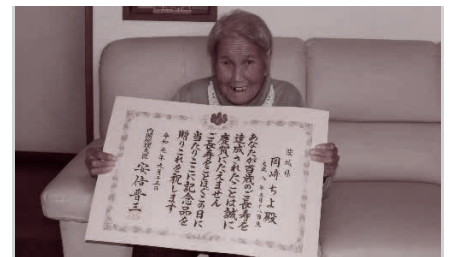 茨城県
岡崎ちよ殿
あなたが百歳のご長寿を
達成されたことは誠に
慶賀にたえません
ご長寿をことほぐこの日に
当たりここに記念品を
贈りこれを祝します
内閣総理大臣 安倍晋三